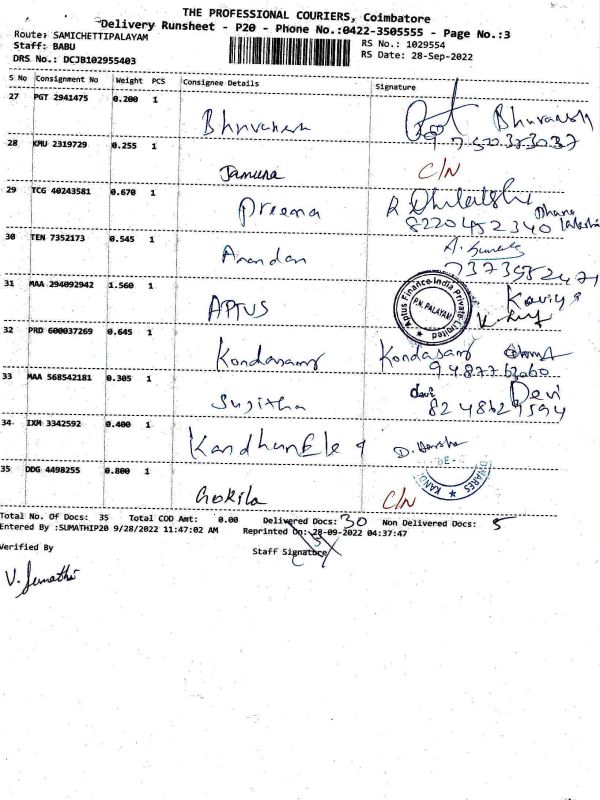 THE PROFESSIONAL COURIERS, Coimbatore
Delivery Runsheet - P20 - Phone No.:0422-3505555 - Page No.:3
Route: SAMICHETTIPALAYAM
Staff: BABU
RS No.: 1029554
DRS No.: DCJB102955403
RS Date: 28-Sep-2022
S No Consignment No Weight PCS Consignee Details Signature
27 PGT 2941475 0.200 1
Bhuvanesh
28 KMU 2319729 0.255 1
Jamuna C/N
29 TCG 40243581 0.670 1
Preena
8220452340
30 TEN 7352173 0.545 1
Anandan
31 MAA 294092942 1.560 1
Aptus Finance India Private Limited
P.N. PALAYAM
Kaviya
APTUS
32 PRD 600037269 0.645 1
Kondasamy Kondasamy
33 MAA 568542181 0.305 1
devi Devi
Sujitha
34 IXM 3342592 0.400 1
D. Harsha
35 DDG 4498255 0.800 1
Gokila C/N
Total No. Of Docs: 35 Total COD Amt: 0.00 Delivered Docs: 30 Non Delivered Docs: 5
Entered By :SUMATHIP20 9/28/2022 11:47:02 AM Reprinted On: 28-09-2022 04:37:47
Verified By
Staff Signature
V. Sumathi